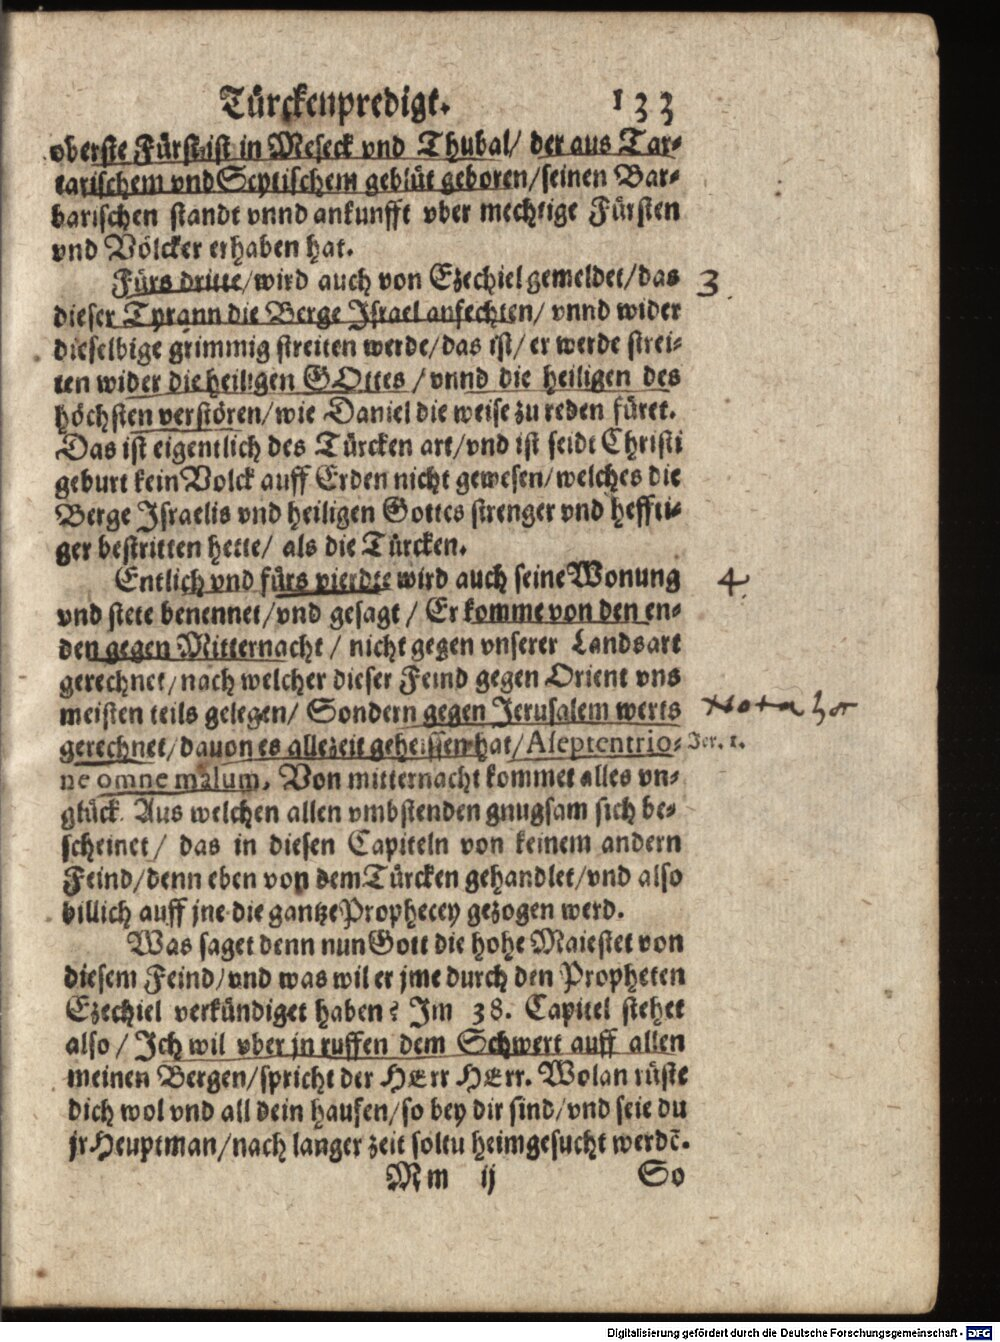 Türckenpredigt. 133
oberste Fürst ist in Meseck vnd Thubal/ der aus Tar-
tarischem vnd Scytischem geblüt geboren/ seinen Bar-
barischen standt vnnd ankunfft vber mechtige Fürsten
vnd Völcker erhaben hat.
Fürs dritte/ wird auch von Ezechiel gemeldet/ das
3
dieser Tyrann die Berge Israel anfechten/ vnnd wider
dieselbige grimmig streiten werde/ das ist/ er werde strei-
ten wider die heiligen GOttes/ vnnd die heiligen des
höchsten verstören/ wie Daniel die weise zu reden füret.
Das ist eigentlich des Türcken art/ vnd ist seidt Christi
geburt kein Volck auff Erden nicht gewesen/ welches die
Berge Israelis vnd heiligen Gottes strenger vnd heffti-
ger bestritten hette/ als die Türcken.
Entlich vnd fürs vierdte wird auch seine Wonung
4.
vnd stete benennet/ vnd gesagt/ Er komme von den en-
den gegen Mitternacht/ nicht gegen vnserer Landsart
gerechnet/ nach welcher dieser Feind gegen Orient vns
meisten teils gelegen/ Sondern gegen Jerusalem werts
gerechnet/ dauon es allezeit geheissen hat/ A septentrio-
Jer. 1.
ne omne malum, Von mitternacht kommet alles vn-
glück. Aus welchen allen vmbstenden gnugsam sich be-
scheinet/ das in diesen Capiteln von keinem andern
Feind/ denn eben von dem Türcken gehandlet/ vnd also
billich auff jne die gantze Prophecey gezogen werd.
Was saget denn nun Gott die hohe Maiestet von
diesem Feind/ vnd was wil er jme durch den Propheten
Ezechiel verkündiget haben? Im 38. Capitel stehet
also/ Ich wil vber jn ruffen dem Schwert auff allen
meinen Bergen/ spricht der HErr HErr. Wolan rüste
dich wol vnd all dein hauffen/ so bey dir sind/ vnd seie du
jr Heuptman/ nach langer zeit soltu heimgesucht werdē.
Mm ij So
Digitalisierung gefördert durch die Deutsche Forschungsgemeinschaft - DFG